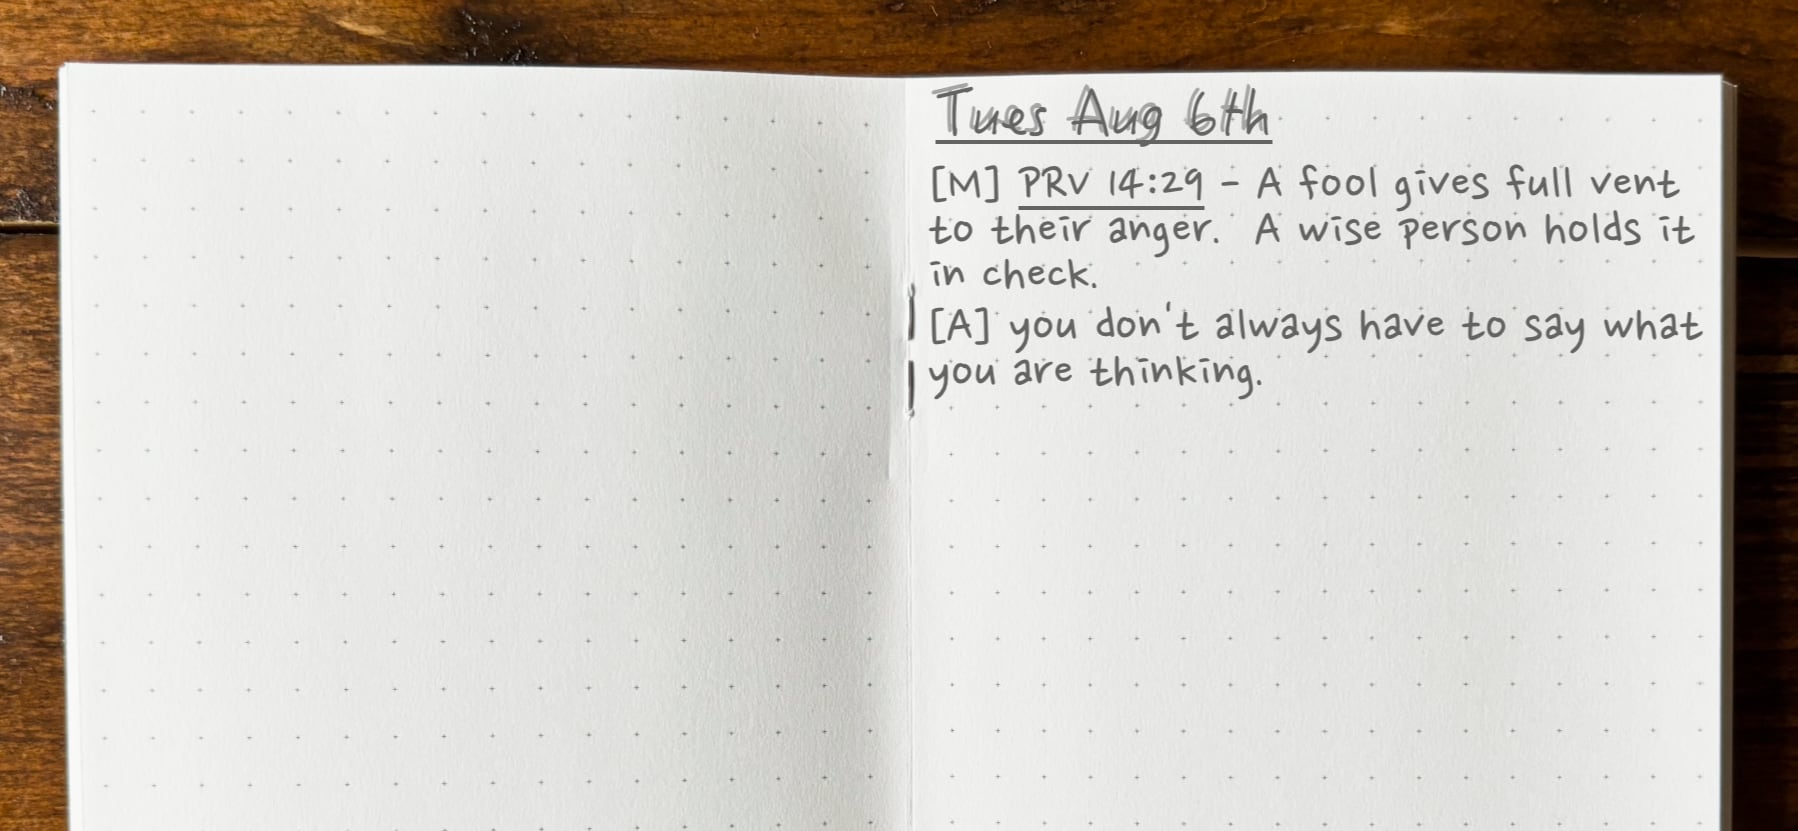 Tues Aug 6th
[M] PRV 14:29 - A fool gives full vent
to their anger. A wise person holds it
in check.
[A] you don't always have to say what
you are thinking.